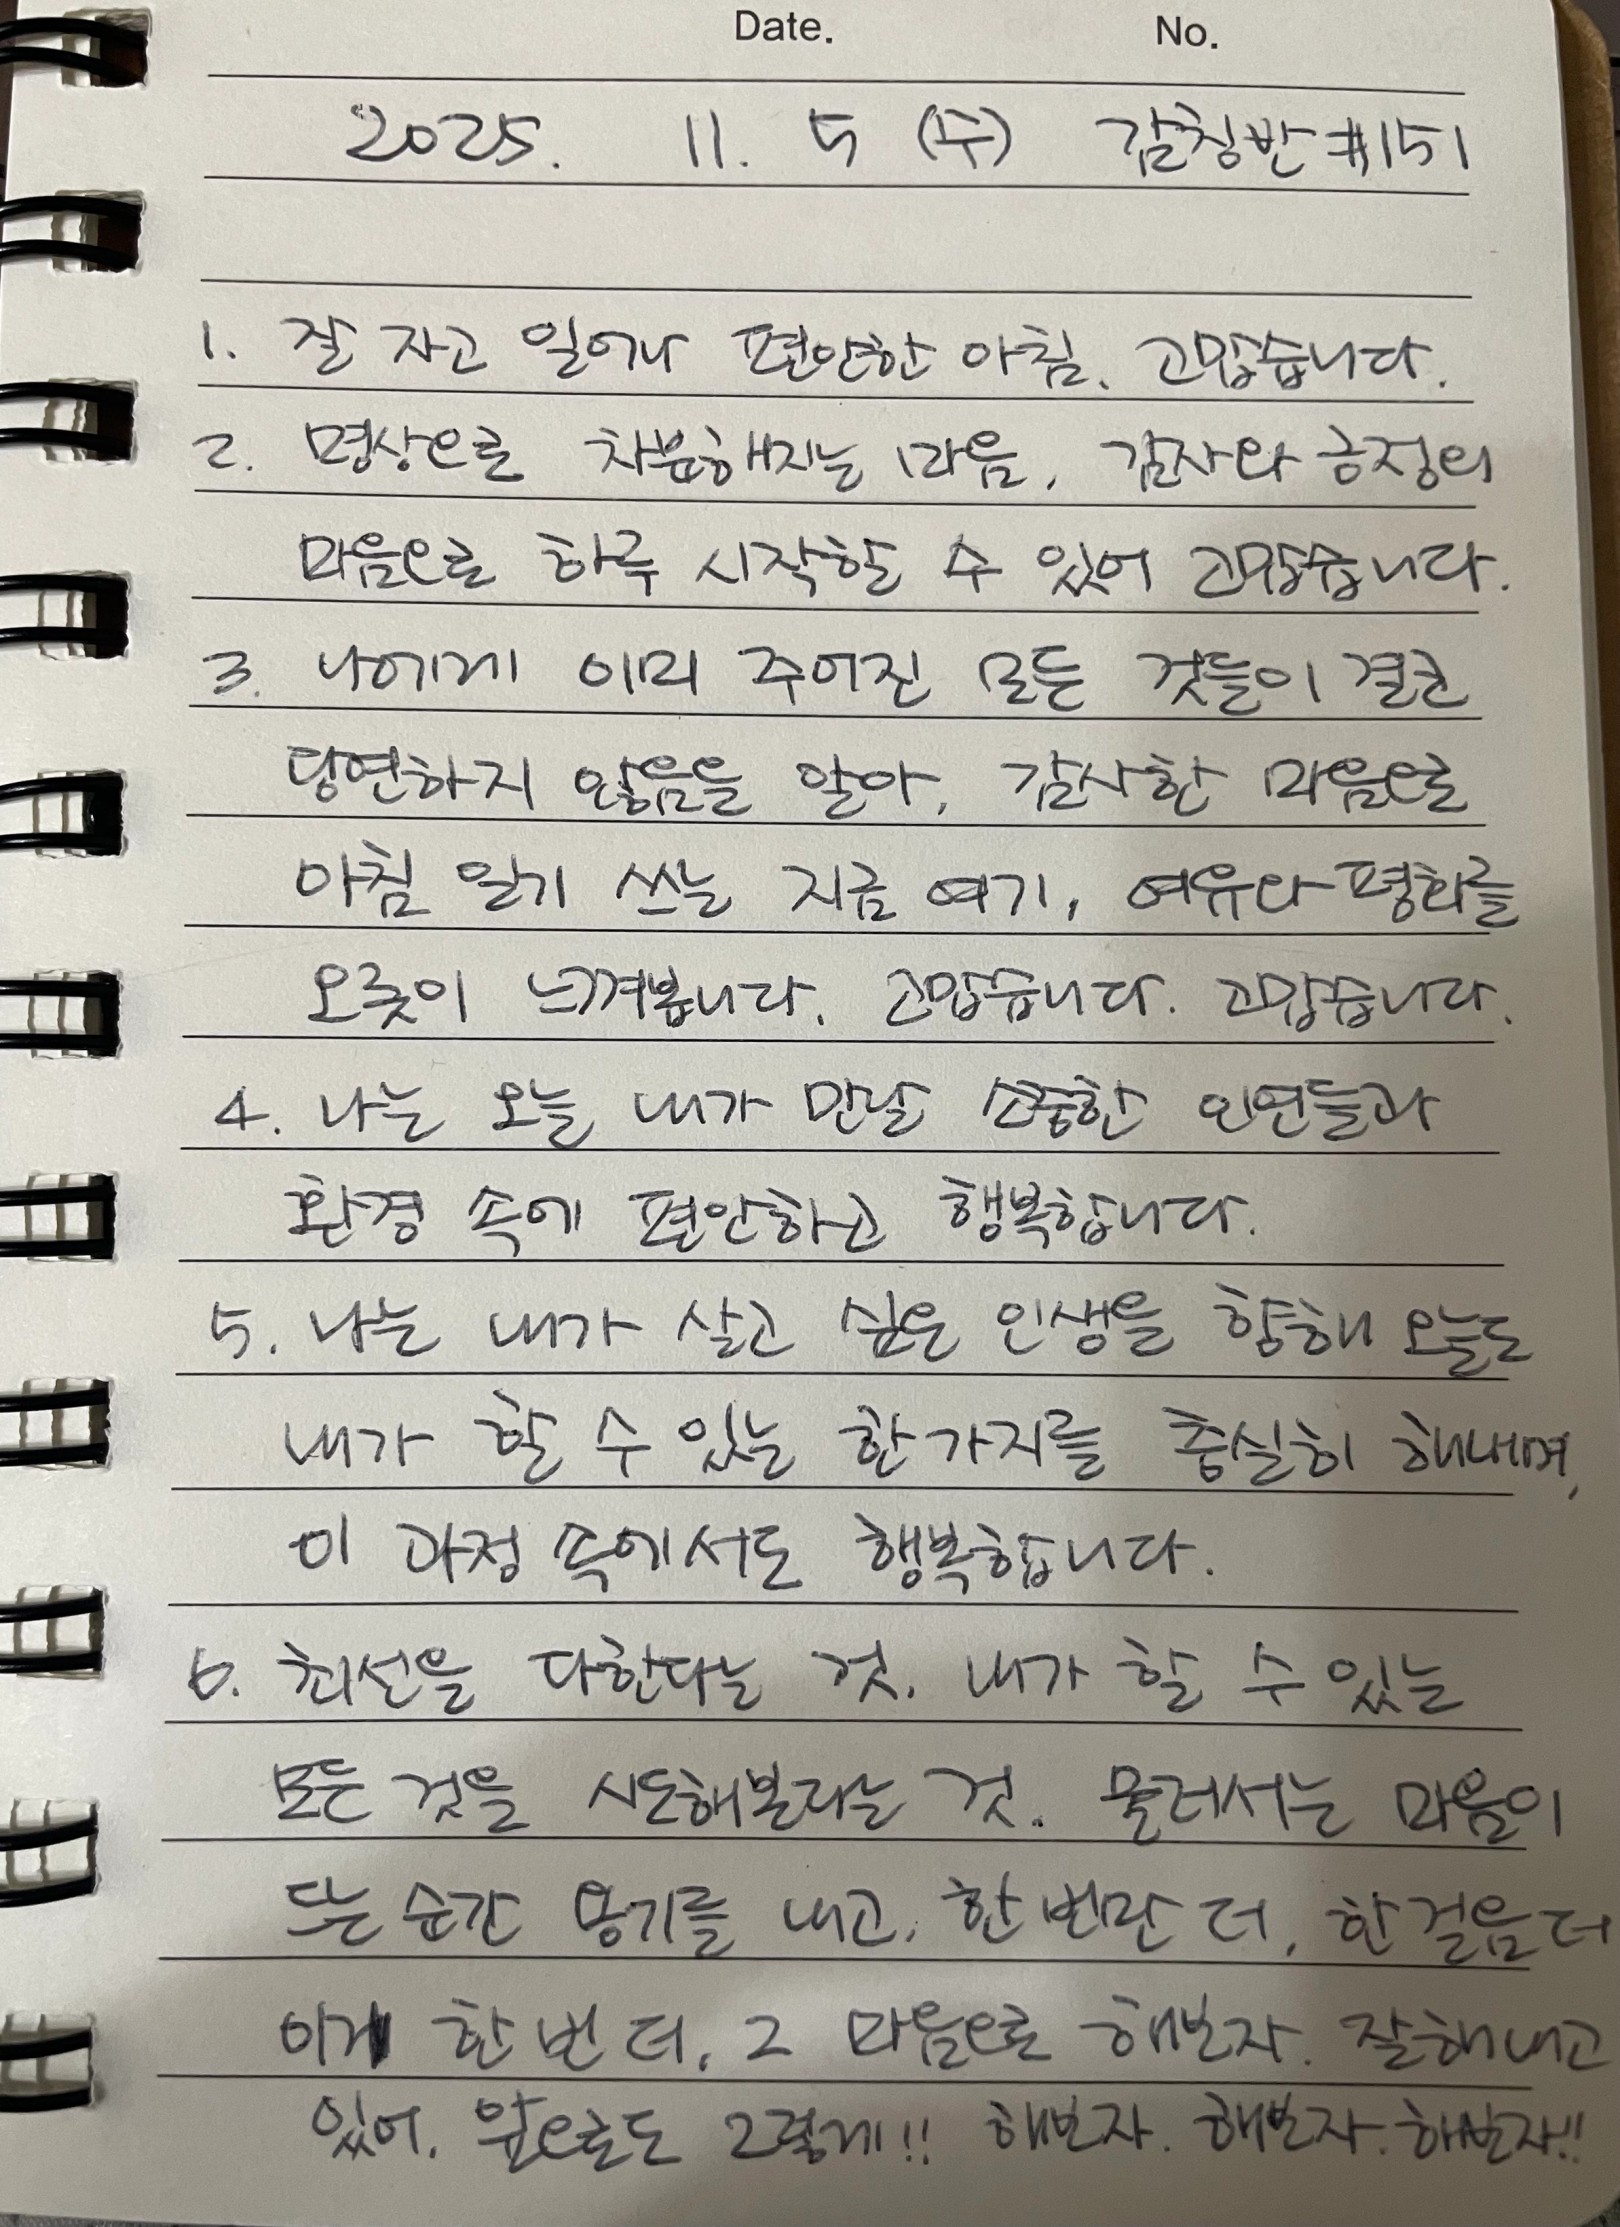 Date. No.
2025. 11. 5 (수) 감칭반 #151
1. 잘 자고 일어나 편안한 아침. 고맙습니다.
2. 명상으로 차분해지는 마음, 감사와 긍정의
마음으로 하루 시작할 수 있어 고맙습니다.
3. 나에게 이미 주어진 모든 것들이 결코
당연하지 않음을 알아, 감사한 마음으로
아침 일기 쓰는 지금 여기, 여유와 평화를
오롯이 느껴봅니다. 고맙습니다. 고맙습니다.
4. 나는 오늘 내가 만날 소중한 인연들과
환경 속에 편안하고 행복합니다.
5. 나는 내가 살고 싶은 인생을 향해 오늘도
내가 할 수 있는 한가지를 충실히 해내며,
이 과정 속에서도 행복합니다.
6. 최선을 다한다는 것. 내가 할 수 있는
모든 것을 시도해본다는 것. 물러서는 마음이
드는 순간 용기를 내고, 한번만 더, 한걸음 더
이게 한 번 더, 그 마음으로 해보자. 잘해내고
있어. 앞으로도 그렇게!! 해보자. 해보자. 해보자!!